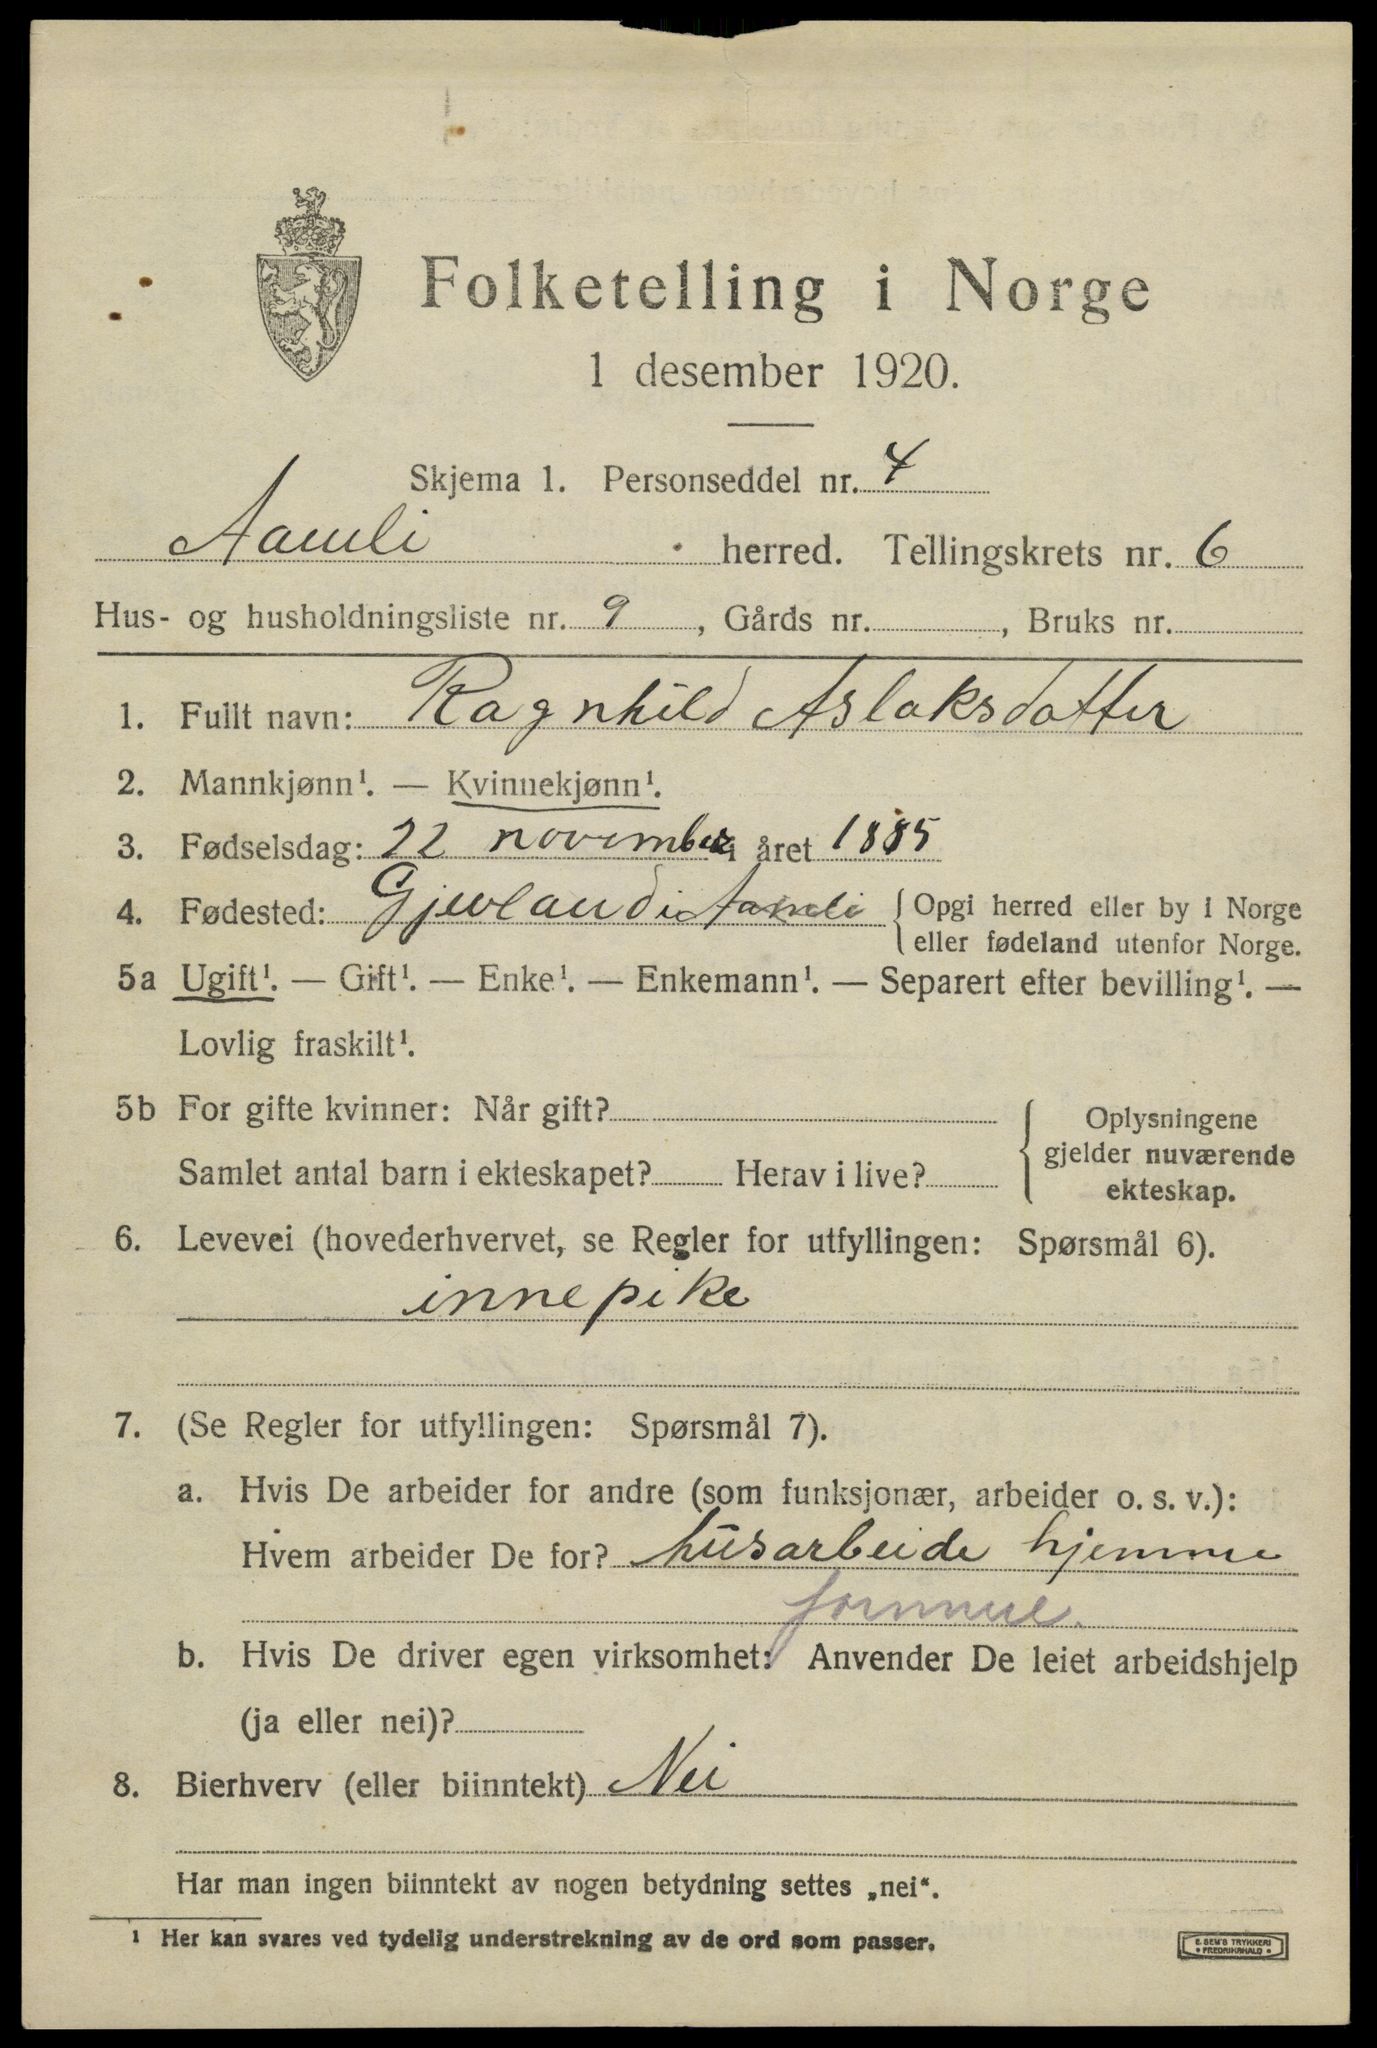 Folketelling i Norge
1 desember 1920.
Skjema 1. Personseddel nr. 4
Aamli herred. Tellingskrets nr. 6
Hus- og husholdningsliste nr. 9, Gårds nr. , Bruks nr.
1. Fullt navn: Ragnhild Aslaksdatter
2. Mannkjønn¹. — Kvinnekjønn¹.
3. Fødselsdag: 22 november i året 1885
4. Fødested: Gjevland i Aamli { Opgi herred eller by i Norge
eller fødeland utenfor Norge.
5a Ugift¹. — Gift¹. — Enke¹. — Enkemann¹. — Separert efter bevilling¹. —
Lovlig fraskilt¹.
5b For gifte kvinner: Når gift?
Samlet antal barn i ekteskapet? Herav i live?
{ Oplysningene
gjelder nuværende
ekteskap.
6. Levevei (hovederhvervet, se Regler for utfyllingen: Spørsmål 6).
innepike
7. (Se Regler for utfyllingen: Spørsmål 7).
a. Hvis De arbeider for andre (som funksjonær, arbeider o. s. v.):
Hvem arbeider De for? husarbeide hjemme
b. Hvis De driver egen virksomhet: Anvender De leiet arbeidshjelp
(ja eller nei)?
8. Bierhverv (eller biinntekt) Nei
Har man ingen biinntekt av nogen betydning settes „nei“.
¹ Her kan svares ved tydelig understrekning av de ord som passer.
E. SEM'S TRYKKERI
• FREDRIKSHALD •